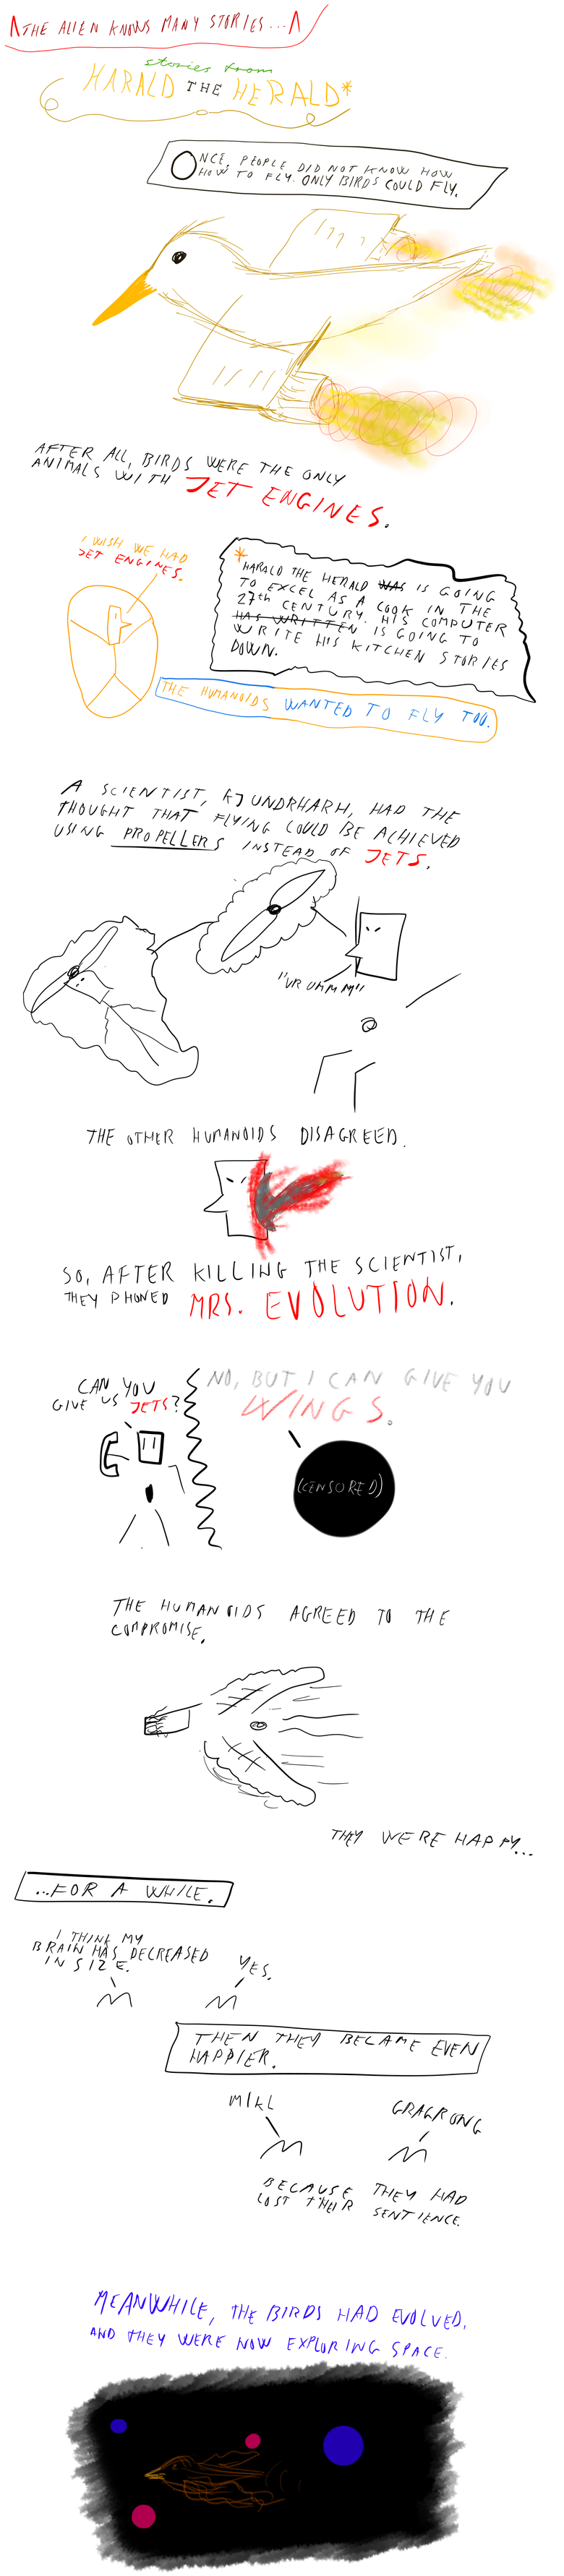 THE ALIEN KNOWS MANY STORIES...
stories from
HARALD THE HERALD*
ONCE, PEOPLE DID NOT KNOW HOW
HOW TO FLY. ONLY BIRDS COULD FLY.
AFTER ALL, BIRDS WERE THE ONLY
ANIMALS WITH JET ENGINES.
I WISH WE HAD
JET ENGINES.
*
HARALD THE HERALD WAS IS GOING
TO EXCEL AS A COOK IN THE
27th CENTURY. HIS COMPUTER
HAS WRITTEN IS GOING TO
WRITE HIS KITCHEN STORIES
DOWN.
THE HUMANOIDS WANTED TO FLY TOO.
A SCIENTIST, KJUNDRHARH, HAD THE
THOUGHT THAT FLYING COULD BE ACHIEVED
USING PROPELLERS INSTEAD OF JETS.
"VRUMMM"
THE OTHER HUMANOIDS DISAGREED.
SO, AFTER KILLING THE SCIENTIST,
THEY PHONED MRS. EVOLUTION.
CAN YOU
GIVE US JETS?
NO, BUT I CAN GIVE YOU
WINGS.
(CENSORED)
THE HUMANOIDS AGREED TO THE
COMPROMISE.
THEY WERE HAPPY...
...FOR A WHILE.
I THINK MY
BRAIN HAS DECREASED
IN SIZE.
YES.
THEN THEY BECAME EVEN
HAPPIER.
MIKL
GRAGRONG
BECAUSE THEY HAD
LOST THEIR SENTIENCE.
MEANWHILE, THE BIRDS HAD EVOLVED,
AND THEY WERE NOW EXPLORING SPACE.